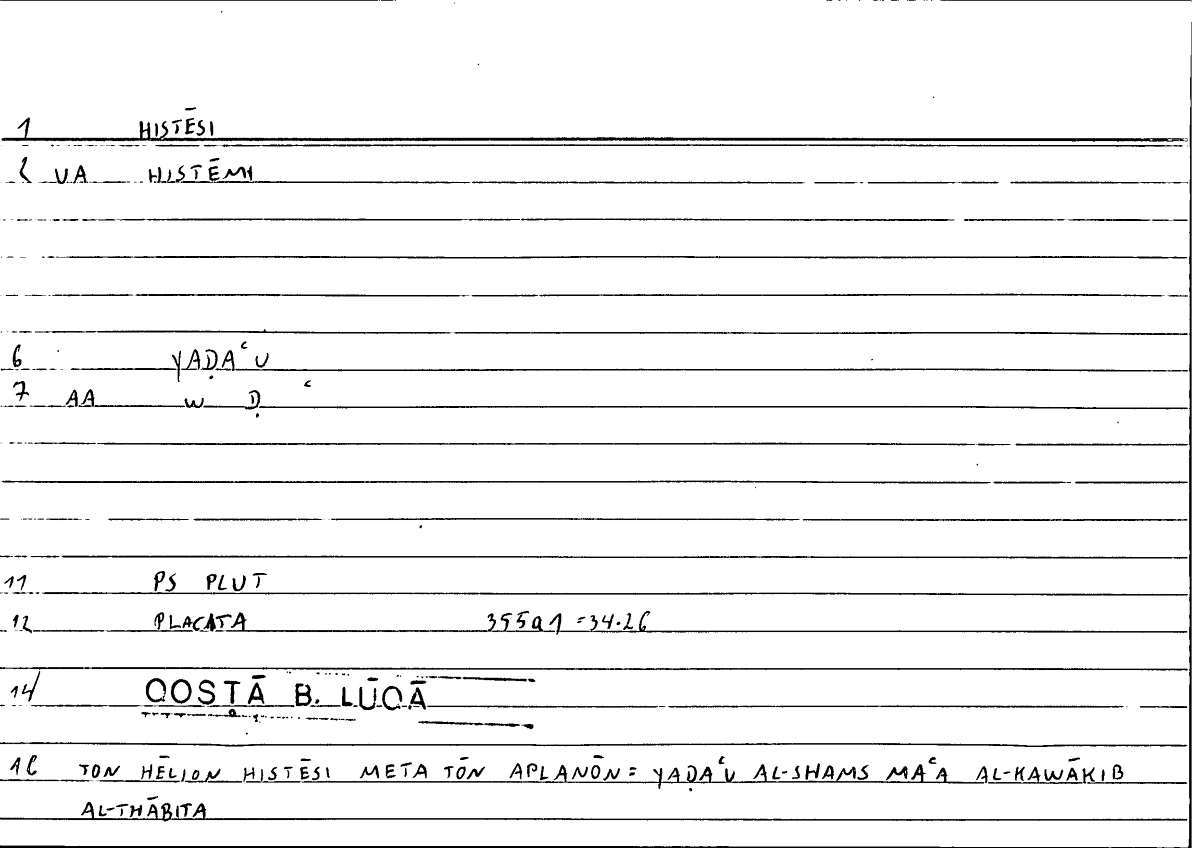 1 HISTĒSI
2 VA HISTĒMI
6 YAḌAʿU
7 AA W Ḍ ʿ
11 PS PLUT
12 PLACATA 355a1 = 34.26
14 QOSṬĀ B. LŪQĀ
16 TON HĒLION HISTĒSI META TŌN APLANŌN = YAḌAʿU AL-SHAMS MAʿA AL-KAWĀKIB
AL-THĀBITA